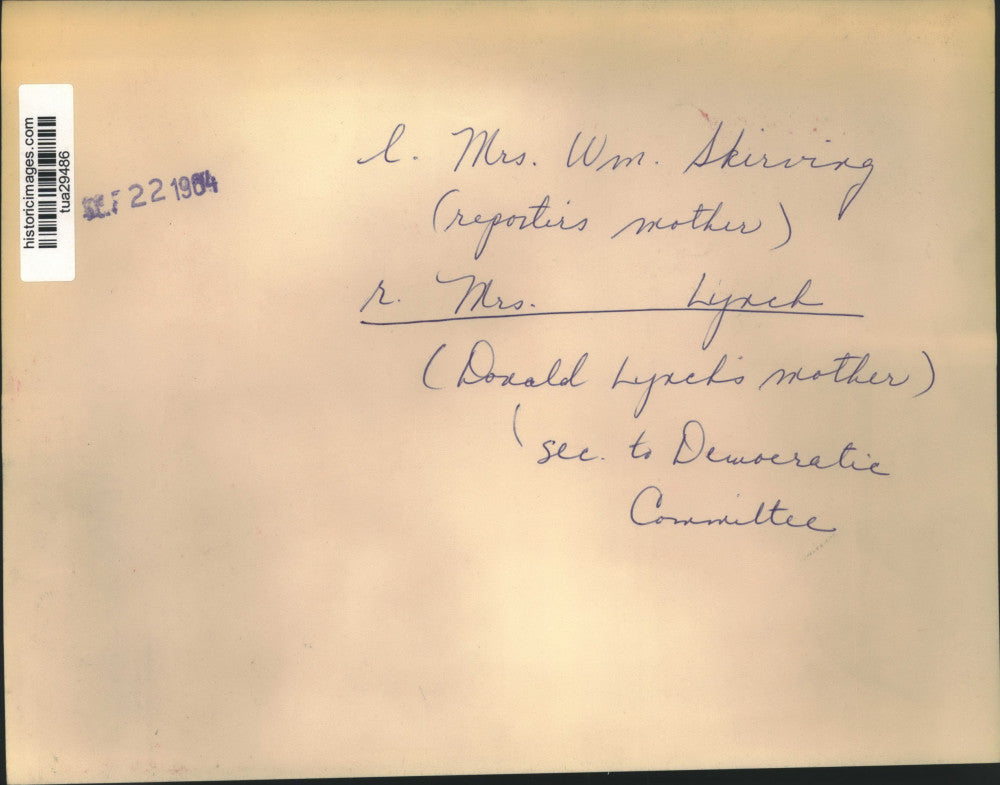 historicimages.com
tua29486
SEP 22 1964
l. Mrs. Wm. Skirving
(reporters mother)
r. Mrs. Lynch
(Donald Lynch's mother)
sec. to Democratic
Committee